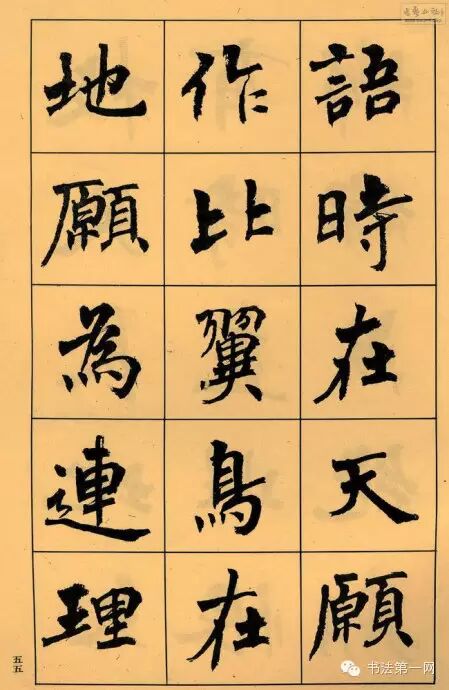 語時在天願
作比翼鳥在
地願為連理
五五
书法第一网